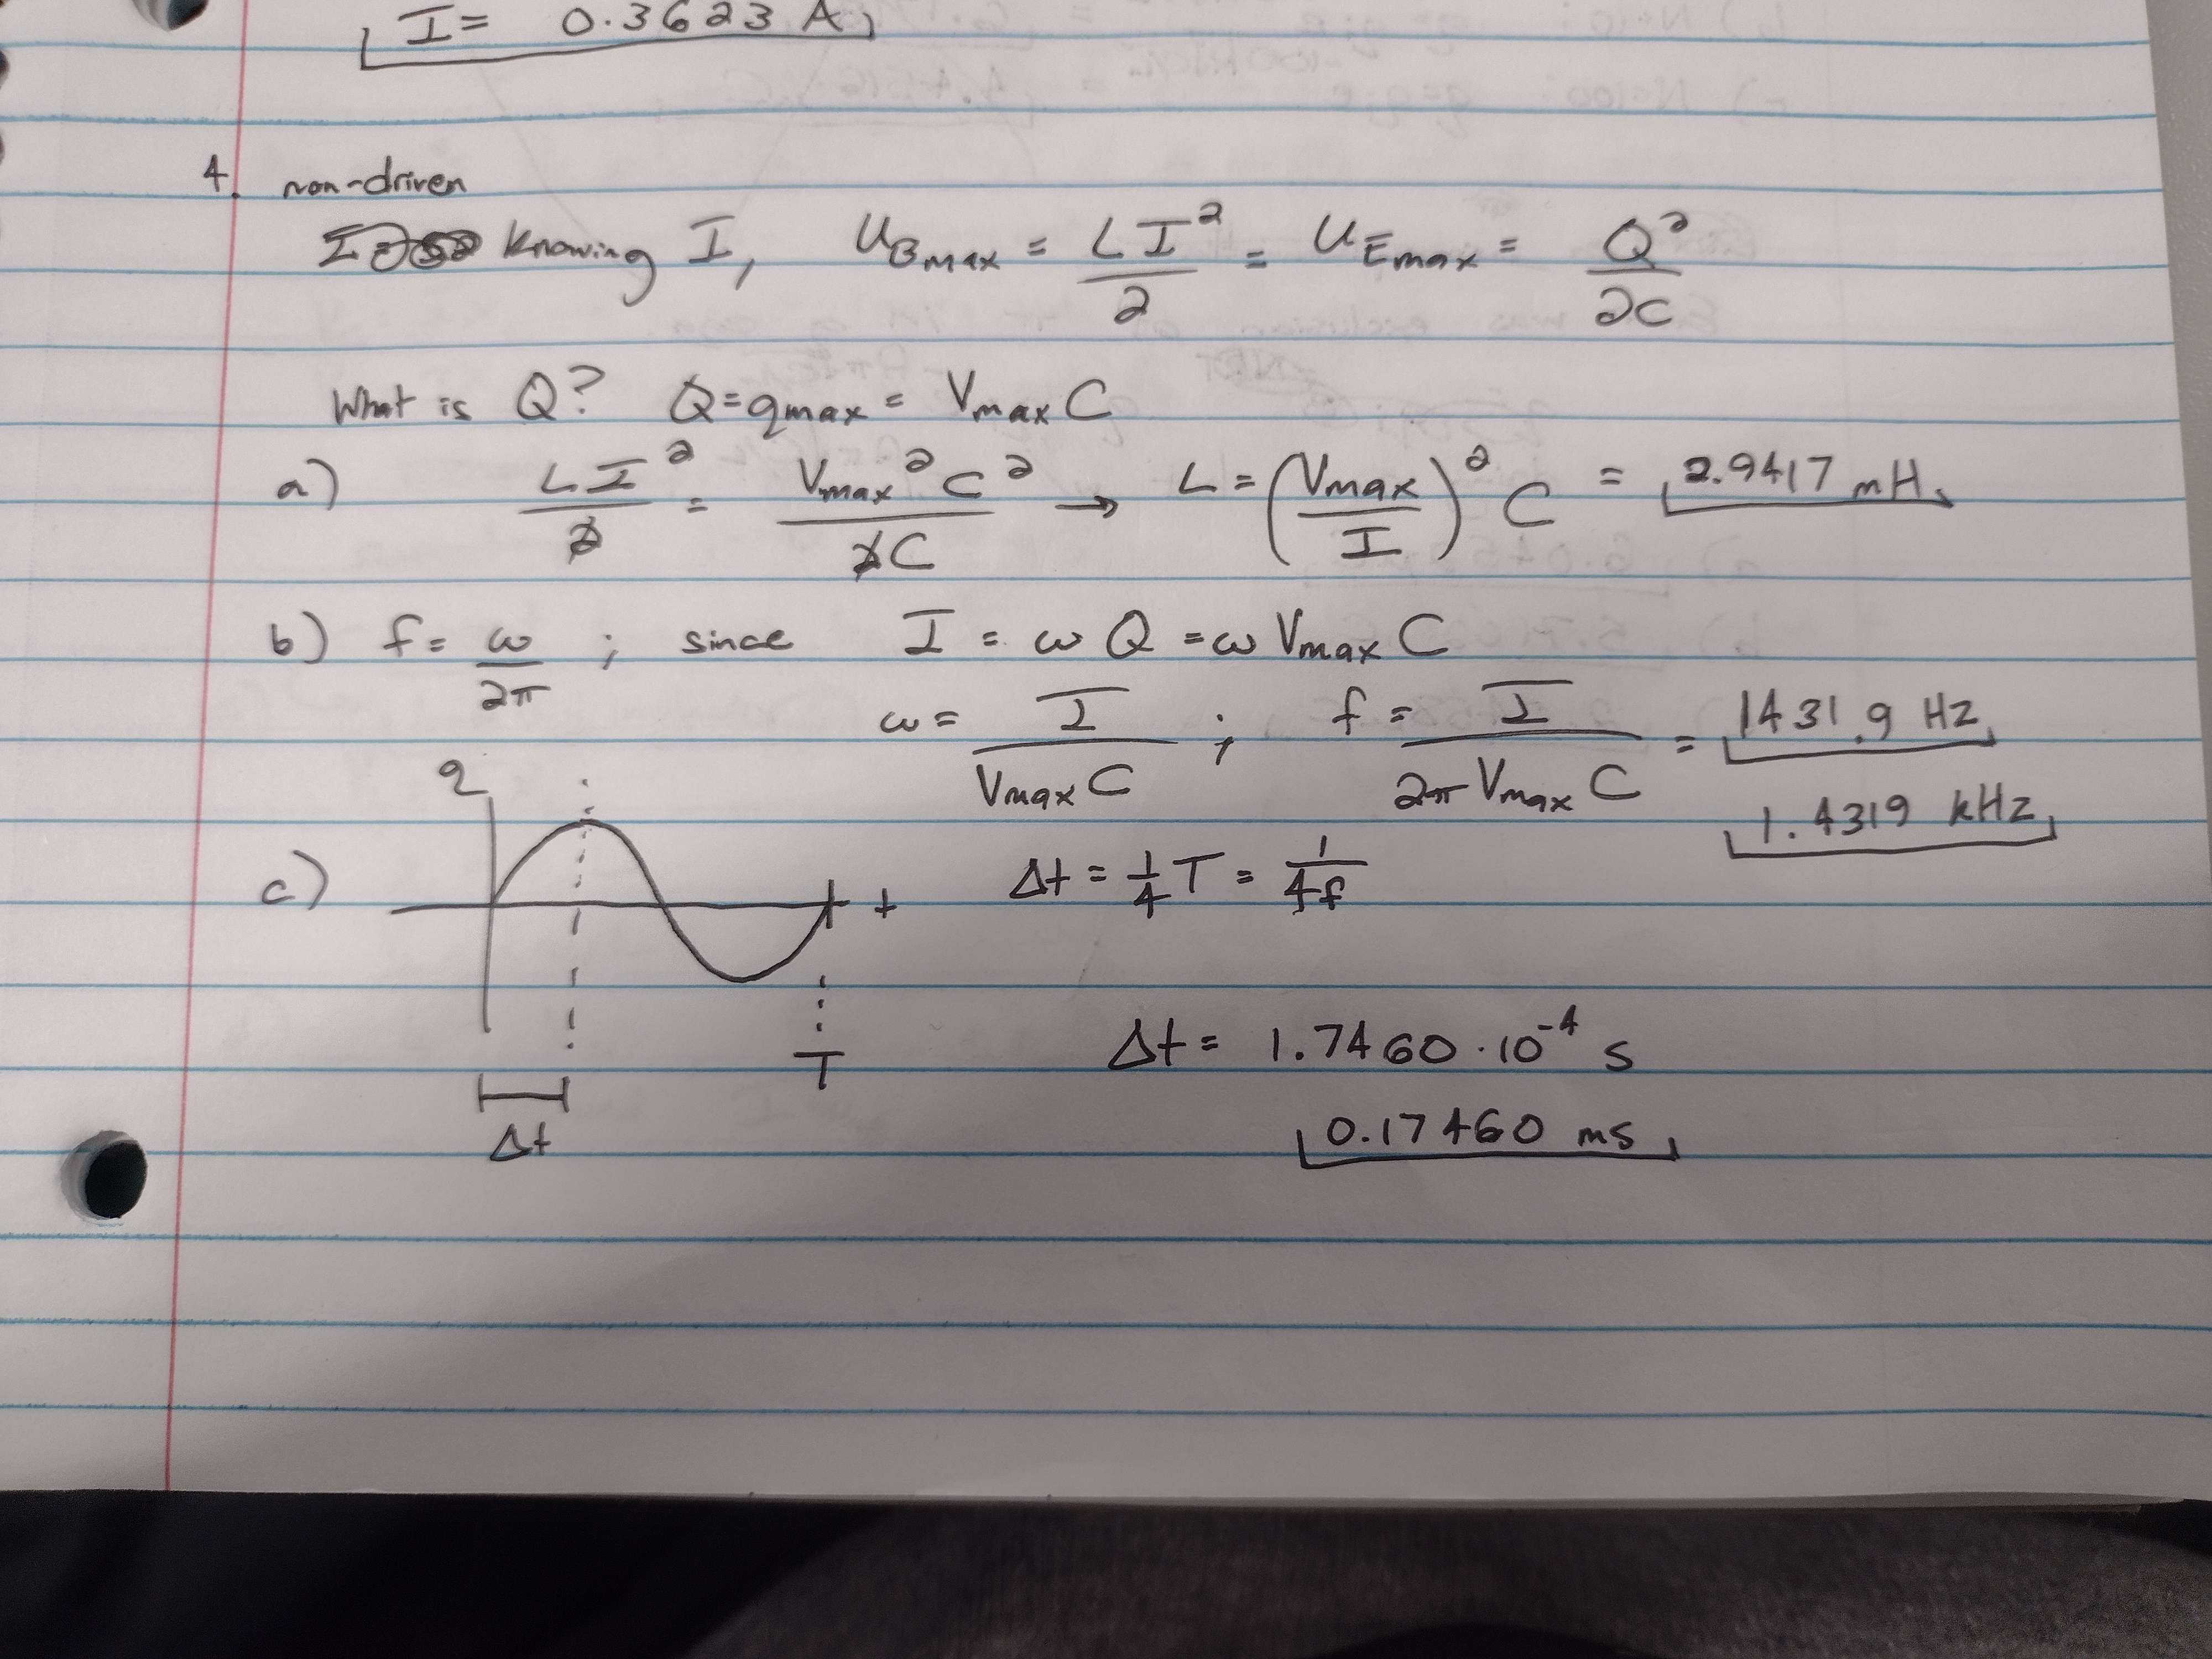 I = 0.3623 A
4. non-driven
knowing I, U_Bmax = LI²/2 = U_Emax = Q²/2C
What is Q? Q = qmax = Vmax C
a) LI²/2 = Vmax² C²/2C → L = (Vmax/I)² C = 2.9417 mH
b) f = ω/2π ; since I = ω Q = ω Vmax C
ω = I/Vmax C ; f = I/2π Vmax C = 1431.9 Hz
1.4319 kHz
q
c) t Δt = 1/4 T = 1/4f
T
Δt
Δt = 1.7460 · 10⁻⁴ s
0.17460 ms